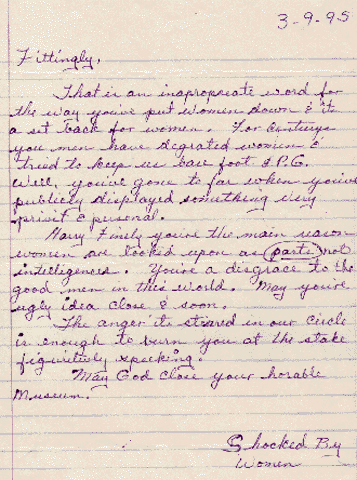 3-9-95
Fittingly,
That is an inapropreate word for
the way you've put women down & it's
a set back for women. For centurys
you men have degrated women &
tried to keep us bare foot & P.G.
Well, you've gone to far when you've
publicly displayed something very
privit & personal.
Harry Finely you're the main reason
women are looked upon as parts not
intelligence. You're a disgrace to the
good men in this world. May you're
ugly idea close & soon.
The anger its stired in our circle
is enough to burn you at the stake
figuritivly specking.
May God close your horable
Museum.
Shocked By
Women